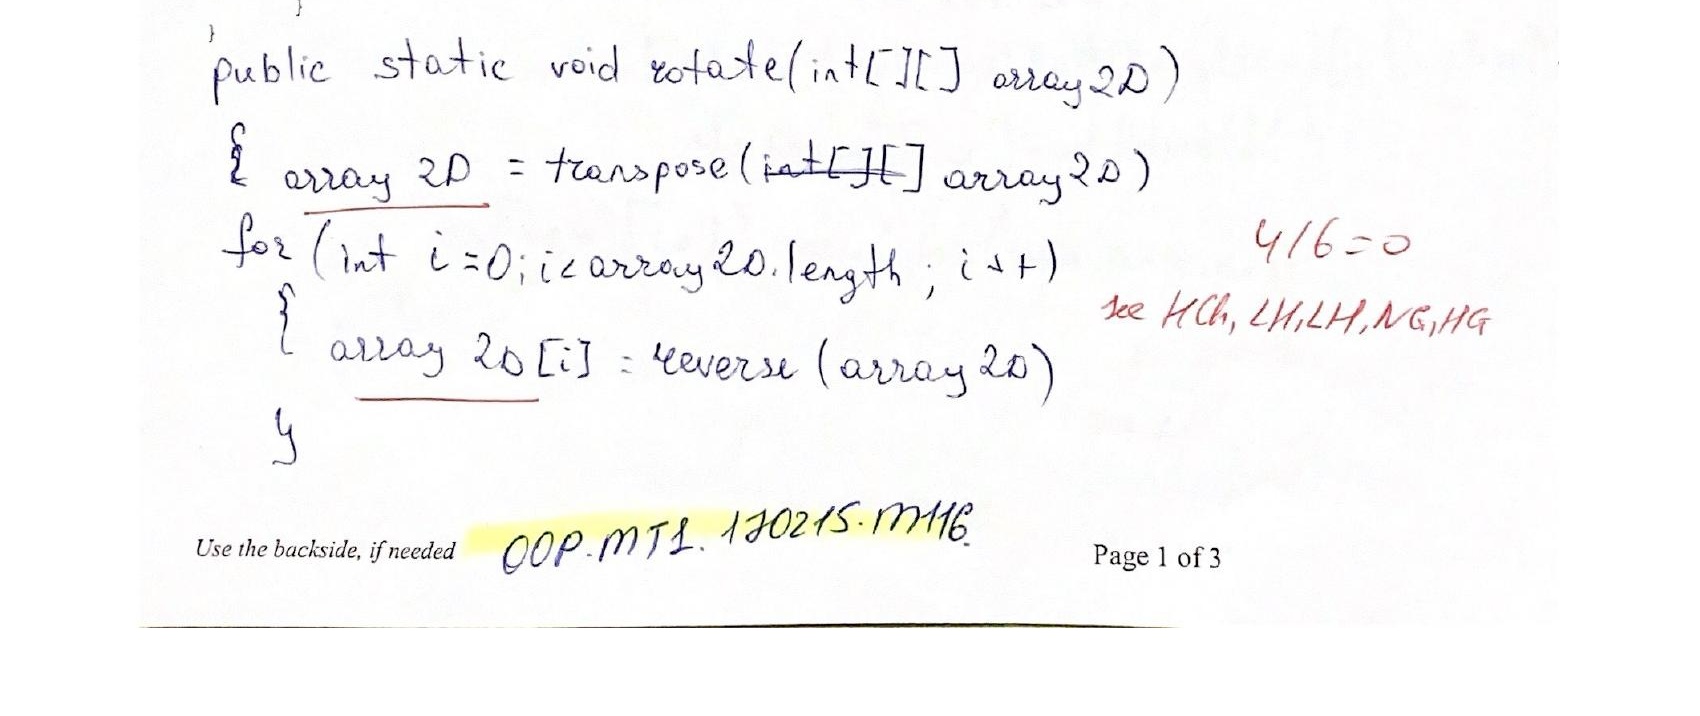 }
}
public static void rotate(int[][] array2D)
{ array 2D = transpose(int[][] array2D)
for (int i=0; i< array2D.length; i++)
{
array 2D[i] = reverse (array2D)
}
4/6=0
see HCh, LH, LH, NG, HG
Use the backside, if needed OOP.MT1.170215.M116. Page 1 of 3